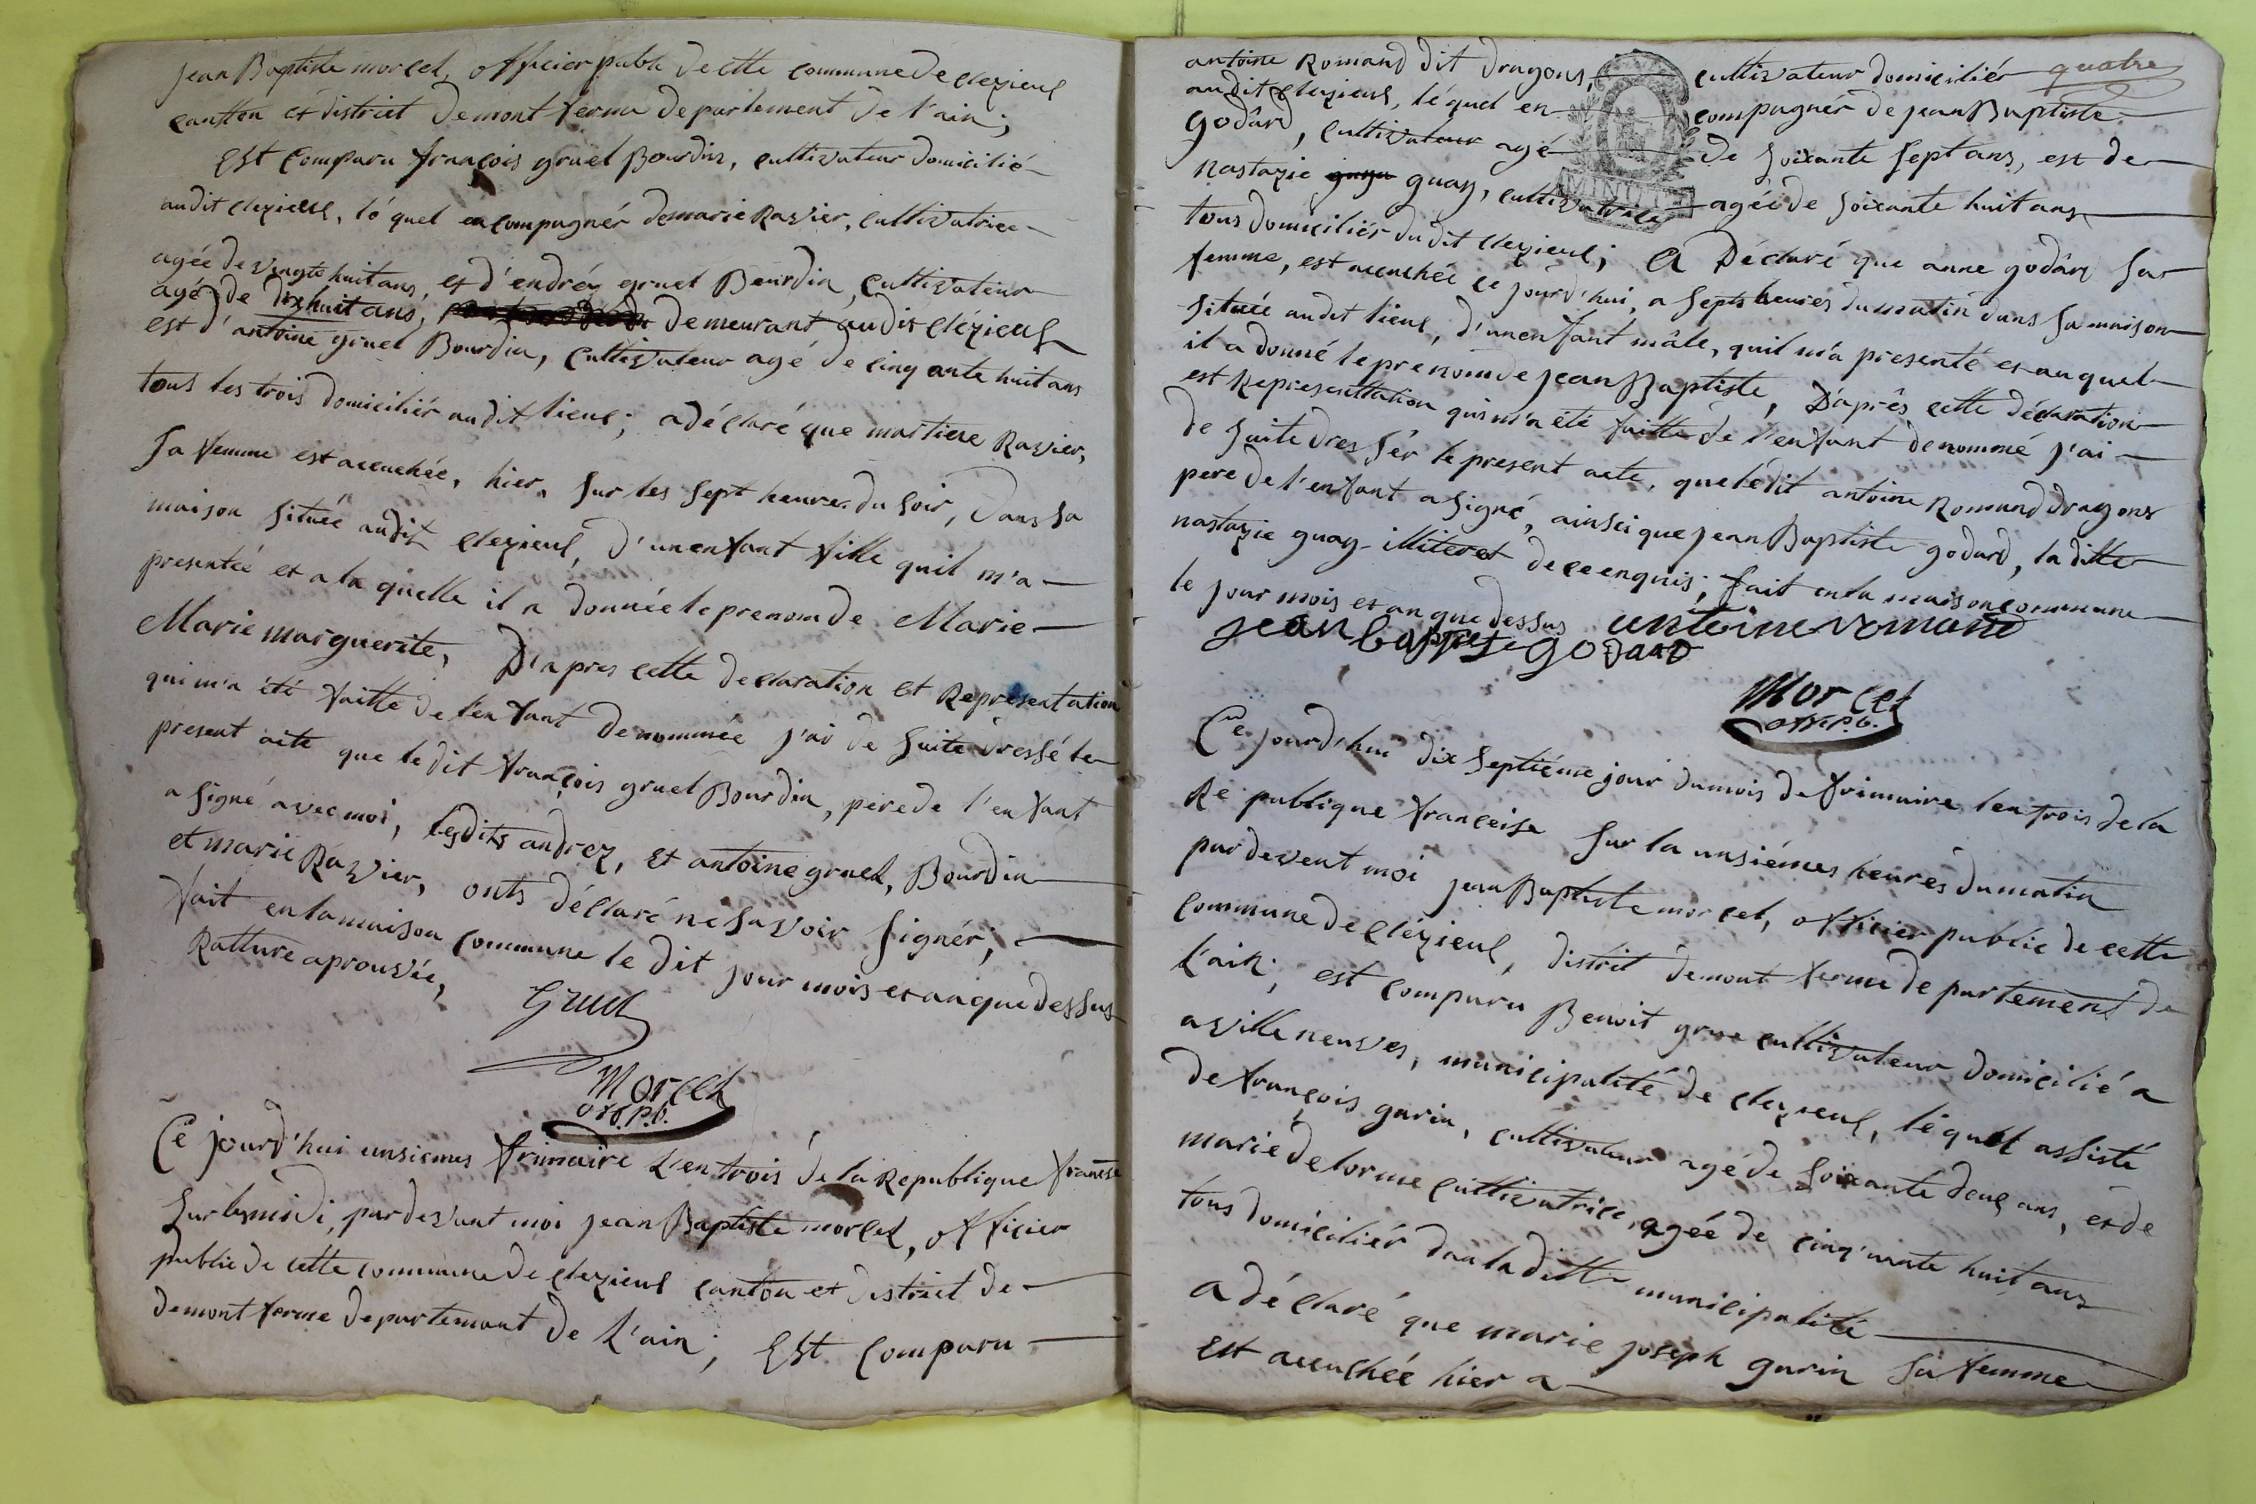 jean Baptiste morcel, officier public de cette commune de clezieul
cantton et district de mont ferme departement de l'ain;
Est comparu françois gruel Bourdin, cultivateur domicilié
audit clezieul, léquel encompagnér de marie Ravier, cultivatrice
agée de vingts huit ans, et d'endréz gruel Bourdin, cultivateur
agé de dix huit ans, demeurant audit clézieul
est d'antoine gruel Bourdin, cultivateur agé de cinq ante huit ans
tous les trois domiciliér audit lieul; a déclaré que martiene Ravier,
sa femme est accuchée, hier, sur les sept heures du soir, dans sa
maison située audit clezieul, d'un enfant fille quil m'a
presentée et a la quelle il a donnée le prenom de Marie
Marie marguerite, D'apres cette declaration et Representation
qui m'a été faitte de l'enfant denommée j'ai de suite dressé le
present acte que le dit françois gruel Bourdin, pere de l'enfant
a signé avec moi, lesdits andrez, et antoine gruel, Bourdin
et marie Ravier, onts déclaré ne savoir signér;
fait en la maison commune le dit jour mois et an que dessus
Ratture aprouvée,
Gruel
Morcel
off. P. b.
Ce jourd'hui unsiemes frimaire l'en trois de la Republique françse
sur les midi, pardevant moi jean Baptiste morcel, officier
public de cette commune de clezieul canton et district de
demont ferme departement de L'ain; Est comparu
quatre
antoine Romand dit dragons, cultivateur domiciliér
audit clezieul, léquel encompagnér de jean Baptiste
Godârd, cultivateur agé de soixante sept ans, est de
Nastazie guay, cultivatrice agée de soixante huit ans
MINUTE
tous domiciliér du dit clezieul; A Déclaré que anne godârd sa
femme, est accuchée ce jourd'hui, a septs heures du matin dans sa maison
située audit lieul, d'un enfant mâle, quil m'a presenté et au quel
il a donné le prenom de jean Baptiste, D'après cette déclaration
est Representtation qui m'a été faitte de l'enfant denommé j'ai
de suite dressér le present acte, que lédit antoine Romand dragons
pere de l'enfant a signé, ainsi que jean Baptiste godard, la ditte
nastazie guay illiteret de ce enquis; fait en la maison commune
le jour mois et an que dessus antoine romand
jean baptiste godard
Morcel
off. P. b.
Ce jourd'hui dix septiéme jour du mois de frimaire l'en trois de la
Republique françeise sur la unsiémes heures du matin
par devent moi jean Baptiste morcel, officier public de cette
commune de clézieul, distrit demont ferme departement de
L'ain; est comparu Benoit grue cultivateur domicilié a
a ville neuves, municipalité de clezieul, léquel assisté
de françois garin, cultivateur agé de soixante deux ans, et de
marie delorme cultivatrice, agée de cinq'uante huit ans
tous domiciliér dan la ditte municipalité
a déclaré que marie joseph garin sa femme
est accuchée hier a